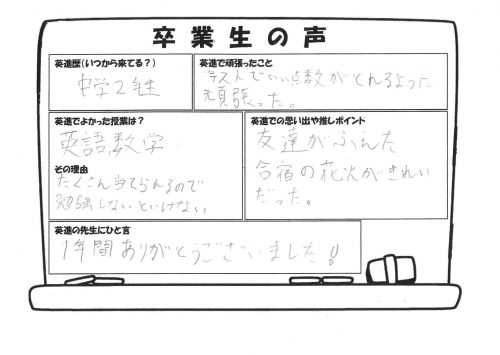 卒業生の声
英進歴(いつから来てる?)
中学2年生
英進で頑張ったこと
テストでいい点数がとれるように
頑張った。
英進でよかった授業は?
英語,数学
その理由
たくさん当てられるので
勉強しないといけない
英進での思い出や推しポイント
友達がふえた
合宿の花火がきれい
だった。
英進の先生にひと言
1年間ありがとうございました!